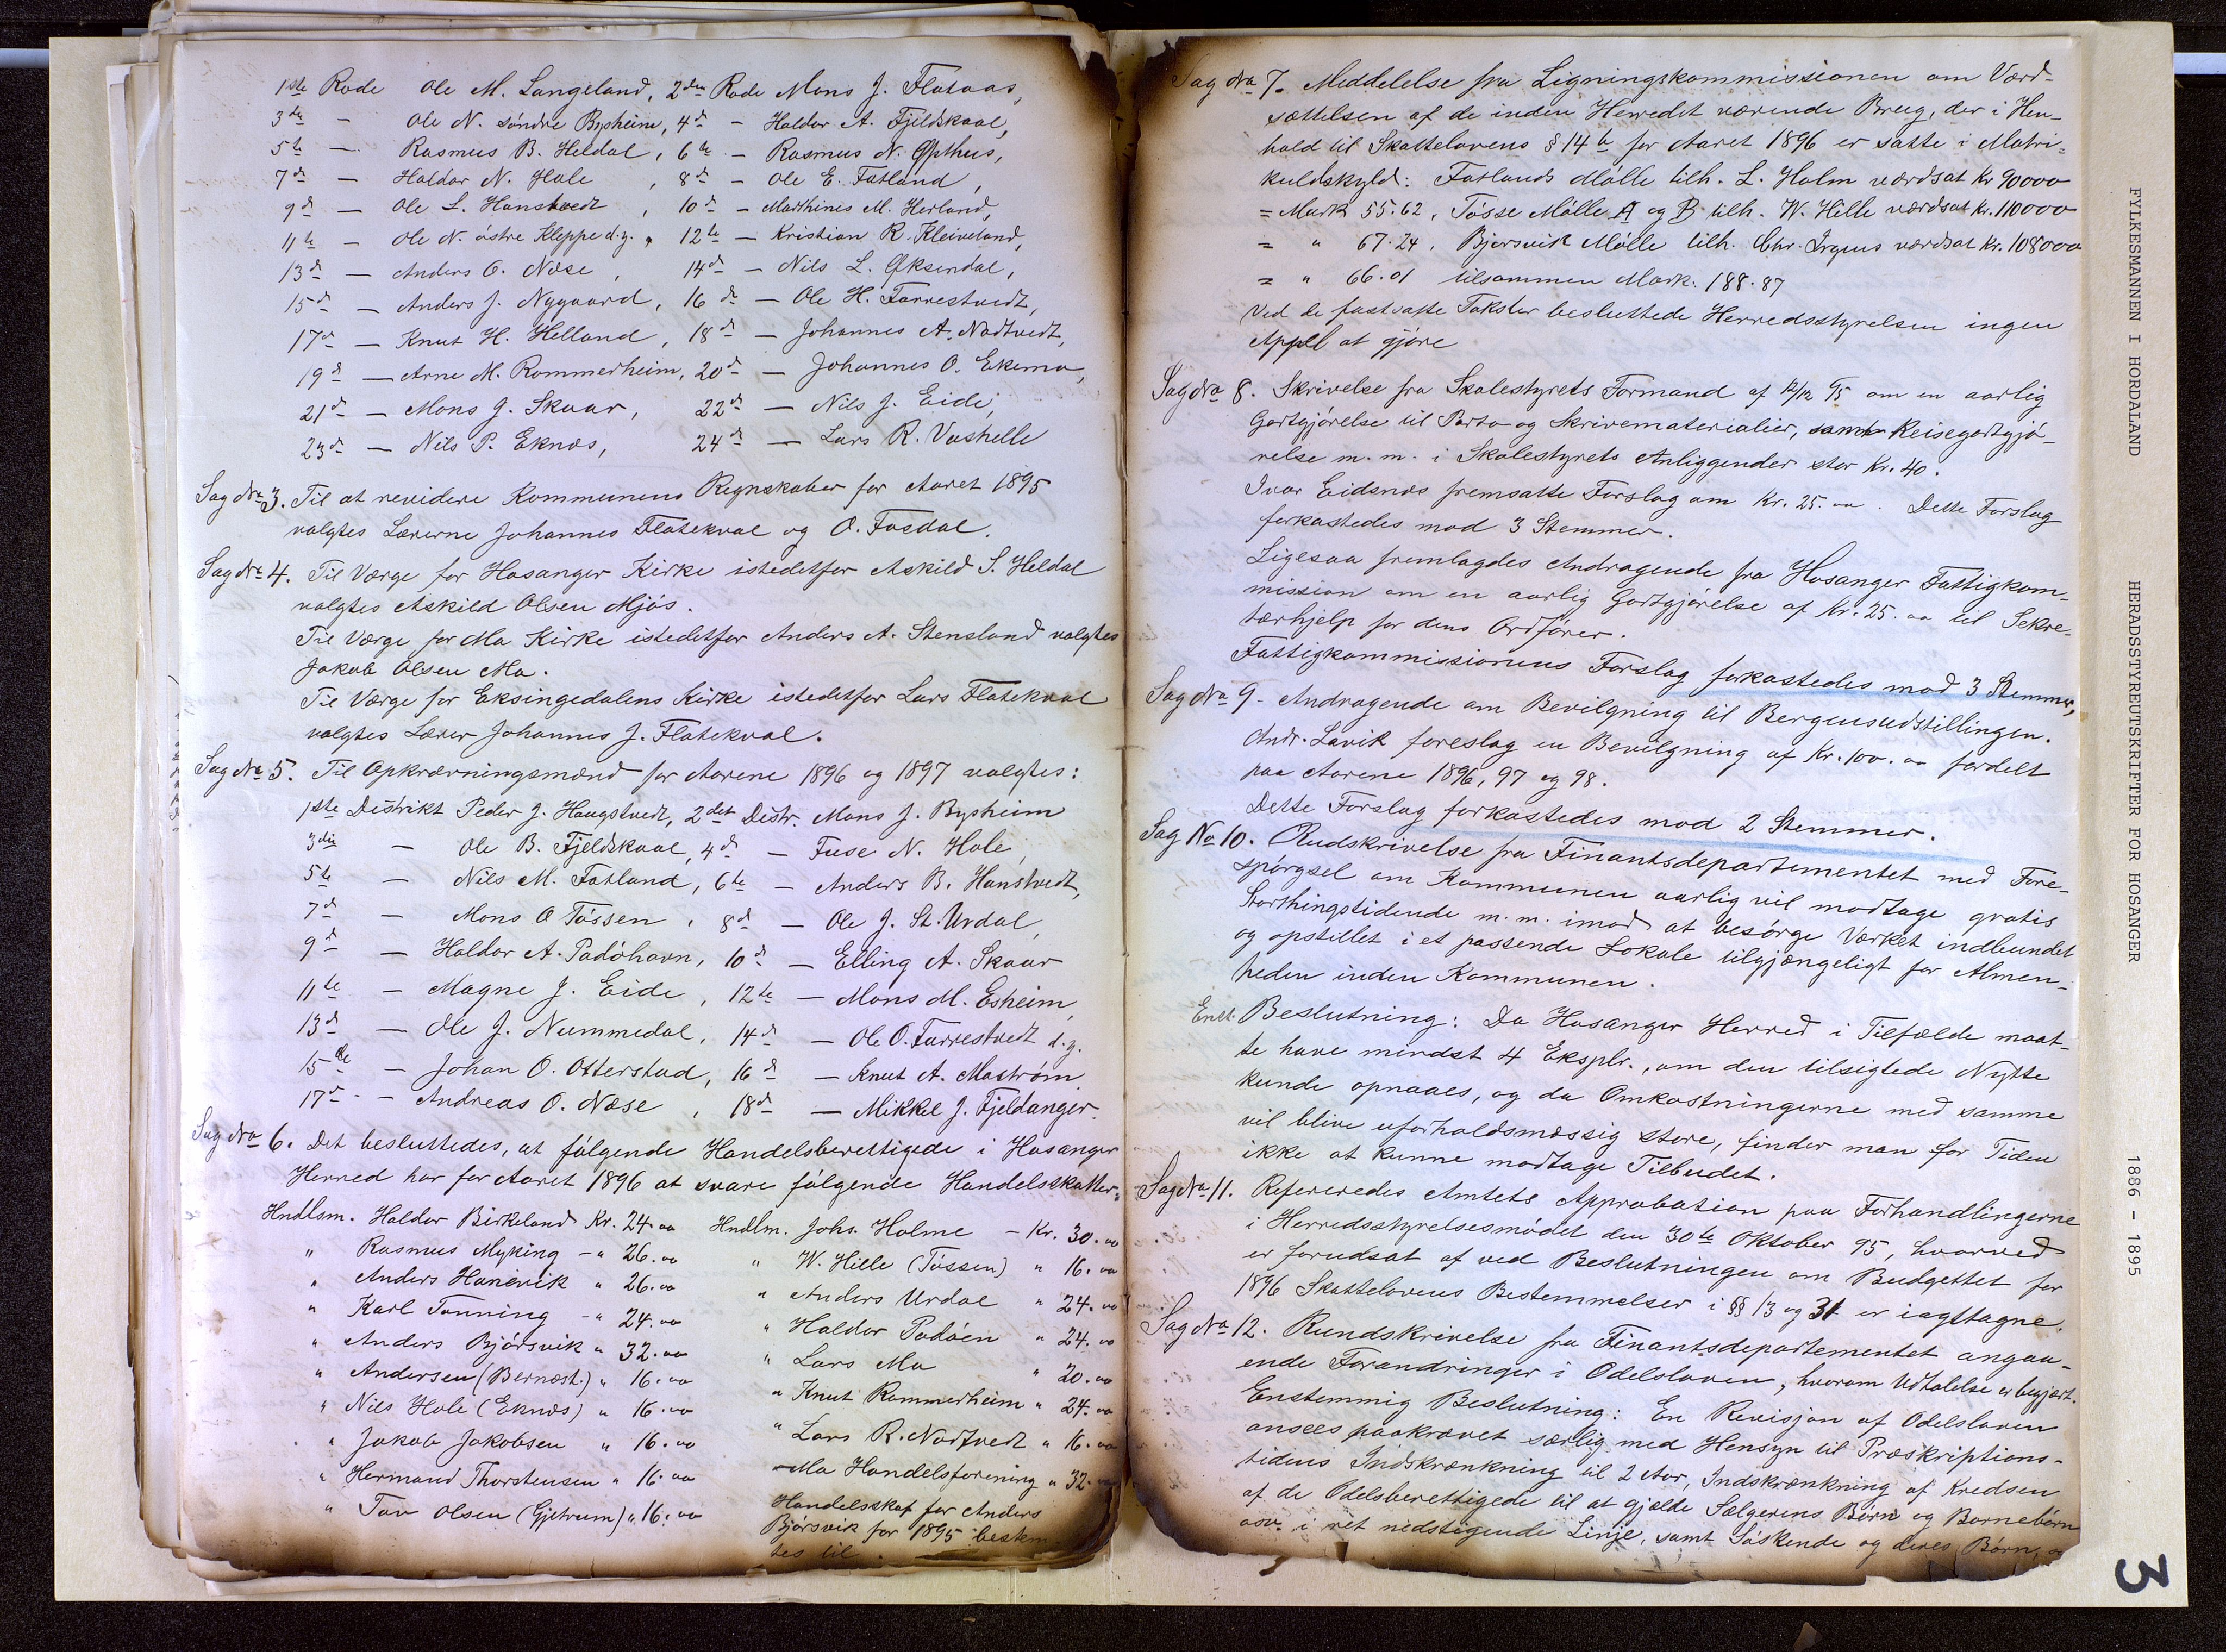 1ste Rode Ole M. Langeland, 2den Rode Mons J. Flataas,
3die - Ole N. søndre Bysheim, 4d - Haldor A. Fjeldskaal,
5te - Rasmus B. Heldal, 6te - Rasmus N. Opthus,
7d - Haldor N. Hole, 8d - Ole E. Fatland,
9d - Ole L. Hanstvedt, 10d - Marthines M. Herland,
11te - Ole N. østre Kleppe d.y., 12te - Kristian R. Kleiveland,
13d - Anders O. Nese, 14d - Nils L. Eksendal,
15d - Anders J. Nygaard, 16d - Ole H. Farrestvedt,
17d - Knut H. Helland, 18d - Johannes A. Nødtvedt,
19d - Arne M. Rommerheim, 20d - Johannes O. Ekemo,
21d - Mons J. Skaar, 22d - Nils J. Eide,
23d - Nils P. Eknæs, 24d - Lars R. Vashelle
Sag No 3. Til at revidere Kommunens Regnskaber for Aaret 1895
valgtes Lærerne Johannes Flatekval og O. Fosdal.
Sag No 4. Til Værge for Hosanger Kirke istedetfor Askild S. Heldal
valgtes Askild Olsen Mjøs.
Til Værge for Mo Kirke istedetfor Anders A. Stensland valgtes
Jakob Olsen Mo.
Til Værge for Eksingedalens Kirke istedetfor Lars Flatekval
valgtes Lærer Johannes J. Flatekval.
Sag No 5. Til Opkrævningsmænd for Aarene 1896 og 1897 valgtes:
1ste Distrikt Peder J. Haugstvedt, 2det Distr. Mons J. Bysheim
3die - Ole B. Fjeldskaal, 4d - Fuse N. Hole,
5te - Nils M. Fatland, 6te - Anders B. Hanstvedt,
7d - Mons O Tøssen, 8d - Ole J. St. Urdal,
9d - Haldor A. Padøhavn, 10d - Elling A. Skaar
11te - Magne J. Eide, 12te - Mons M. Esheim,
13d - Ole J. Nummedal, 14d - Ole O. Farrestvedt d.y.
15de - Johan O. Otterstad, 16d - Knut A. Mostrøm
17d - Andreas O. Nese, 18d - Mikkel J. Fjeldanger.
Sag No 6. Det besluttedes, at følgende Handelsberettigede i Hosanger
Herred har for Aaret 1896 at svare følgende Handelsskatter:
Hndlsm. Haldor Birkeland Kr. 24.00 Hndlm. Johs. Holme - Kr. 30.00
" Rasmus Myking - " 26.00 " W. Hille (Tøssen) " 16.00
" Anders Hanevik " 26.00 " Anders Urdal " 24.00
" Karl Tanning - " 24.00 " Haldor Padøen " 24.00
" Anders Bjørsvik " 32.00 " Lars Mo " 20.00
" Andersen (Bernæst.) " 16.00 " Knut Rommerheim " 24.00
" Nils Hole (Eknæs) " 16.00 " Lars R. Nødtvedt " 16.00
" Jakob Jakobsen " 16.00 Mo Handelsforening " 32.
" Hermand Thorstensen " 16.00 Handelsskat for Anders
" Tov Olsen (Gjetrum) " 16.00 Bjørsvik for 1895 bestem
tes til
Sag No 7. Meddelelse fra Ligningskommissionen om Værd-
sættelsen af de inden Herredet værende Brug, der i Hen-
hold til Skattelovens § 14 b for Aaret 1896 er satte i Matri-
kuldskyld: Fatlands Mølle tilh. L. Holm værdsat Kr 90000
= Mark 55.62, Tøsse Mølle A og B tilh. W. Hille værdsat Kr. 110000
= " 67.24, Bjørsvik Mølle tilh. Chr. Irgens værdsat Kr. 108000
= " 66.01 tilsammen Mark. 188.87
Ved de fastsatte Takster besluttede Herredsstyrelsen ingen
Appel at gjøre
Sag No 8. Skrivelse fra Skolestyrets Formand af 12/12 95 om en aarlig
Godtgjørelse til Porto og Skrivematerialier, samt Reisegodtgjø-
relse m. m. i Skolestyrets Anliggender stor Kr. 40.
Ivar Eidsnes fremsatte Forslag om Kr. 25.00. Dette Forslag
forkastedes mod 3 Stemmer.
Ligesaa fremlagdes Andragende fra Hosanger Fattigkom-
mission om en aarlig Godtgjørelse af Kr. 25.00 til Sekre-
tærhjelp for dens Ordfører.
Fattigkommissionens Forslag forkastedes mod 3 Stemmer,
Sag No 9. Andragende om Bevilgning til Bergensudstillingen.
Andr. Lavik foreslog en Bevilgning af Kr. 100.00 fordelt
paa Aarene 1896, 97 og 98.
Dette Forslag forkastedes mod 2 Stemmer.
Sag No 10. Rudskrivelse fra Finantsdepartementet med Fore-
spørgsel om Kommunen aarlig vil modtage gratis
Storthingstidende m. m. imod at besørge Værket indbundet
og opstillet i et passende Lokale tilgjængeligt for Almen-
heden inden Kommunen.
Enst. Beslutning: Da Hosanger Herred i Tilfælde maat-
te have mindst 4 Eksplr., om den tilsigtede Nytte
kunde opnaaes, og da Omkostningerne med samme
vil blive uforholdsmæssig store, finder man for Tiden
ikke at kunne modtage Tilbudet.
Sag No 11. Refereredes Amtets Approbation paa Forhandlingerne
i Herredsstyrelsesmødet den 30te Oktober 95, hvorved
er forudsat at ved Beslutningen om Budgettet for
1896 Skattelovens Bestemmelser i §§ 13 og 31 er iagttagne.
Sag No 12. Rundskrivelse fra Finantsdepartementet angaa-
ende Forandringer i Odelsloven, hvorom Udtalelse er begjært.
Enstemmig Beslutning: En Revisjon af Odelsloven
ansees paakrævet særlig med Hensyn til Præskriptions-
tidens Indskrænkning til 2 Aar, Indskrænkning af Kredsen
af de Odelsberettigede til at gjælde Sælgerens Børn og Børnebørn
osv. i ret nedstigende Linje, samt Søskende og deres Børn,
FYLKESMANNEN I HORDALAND HERADSSTYREUTSKRIFTER FOR HOSANGER 1886 - 1895
3